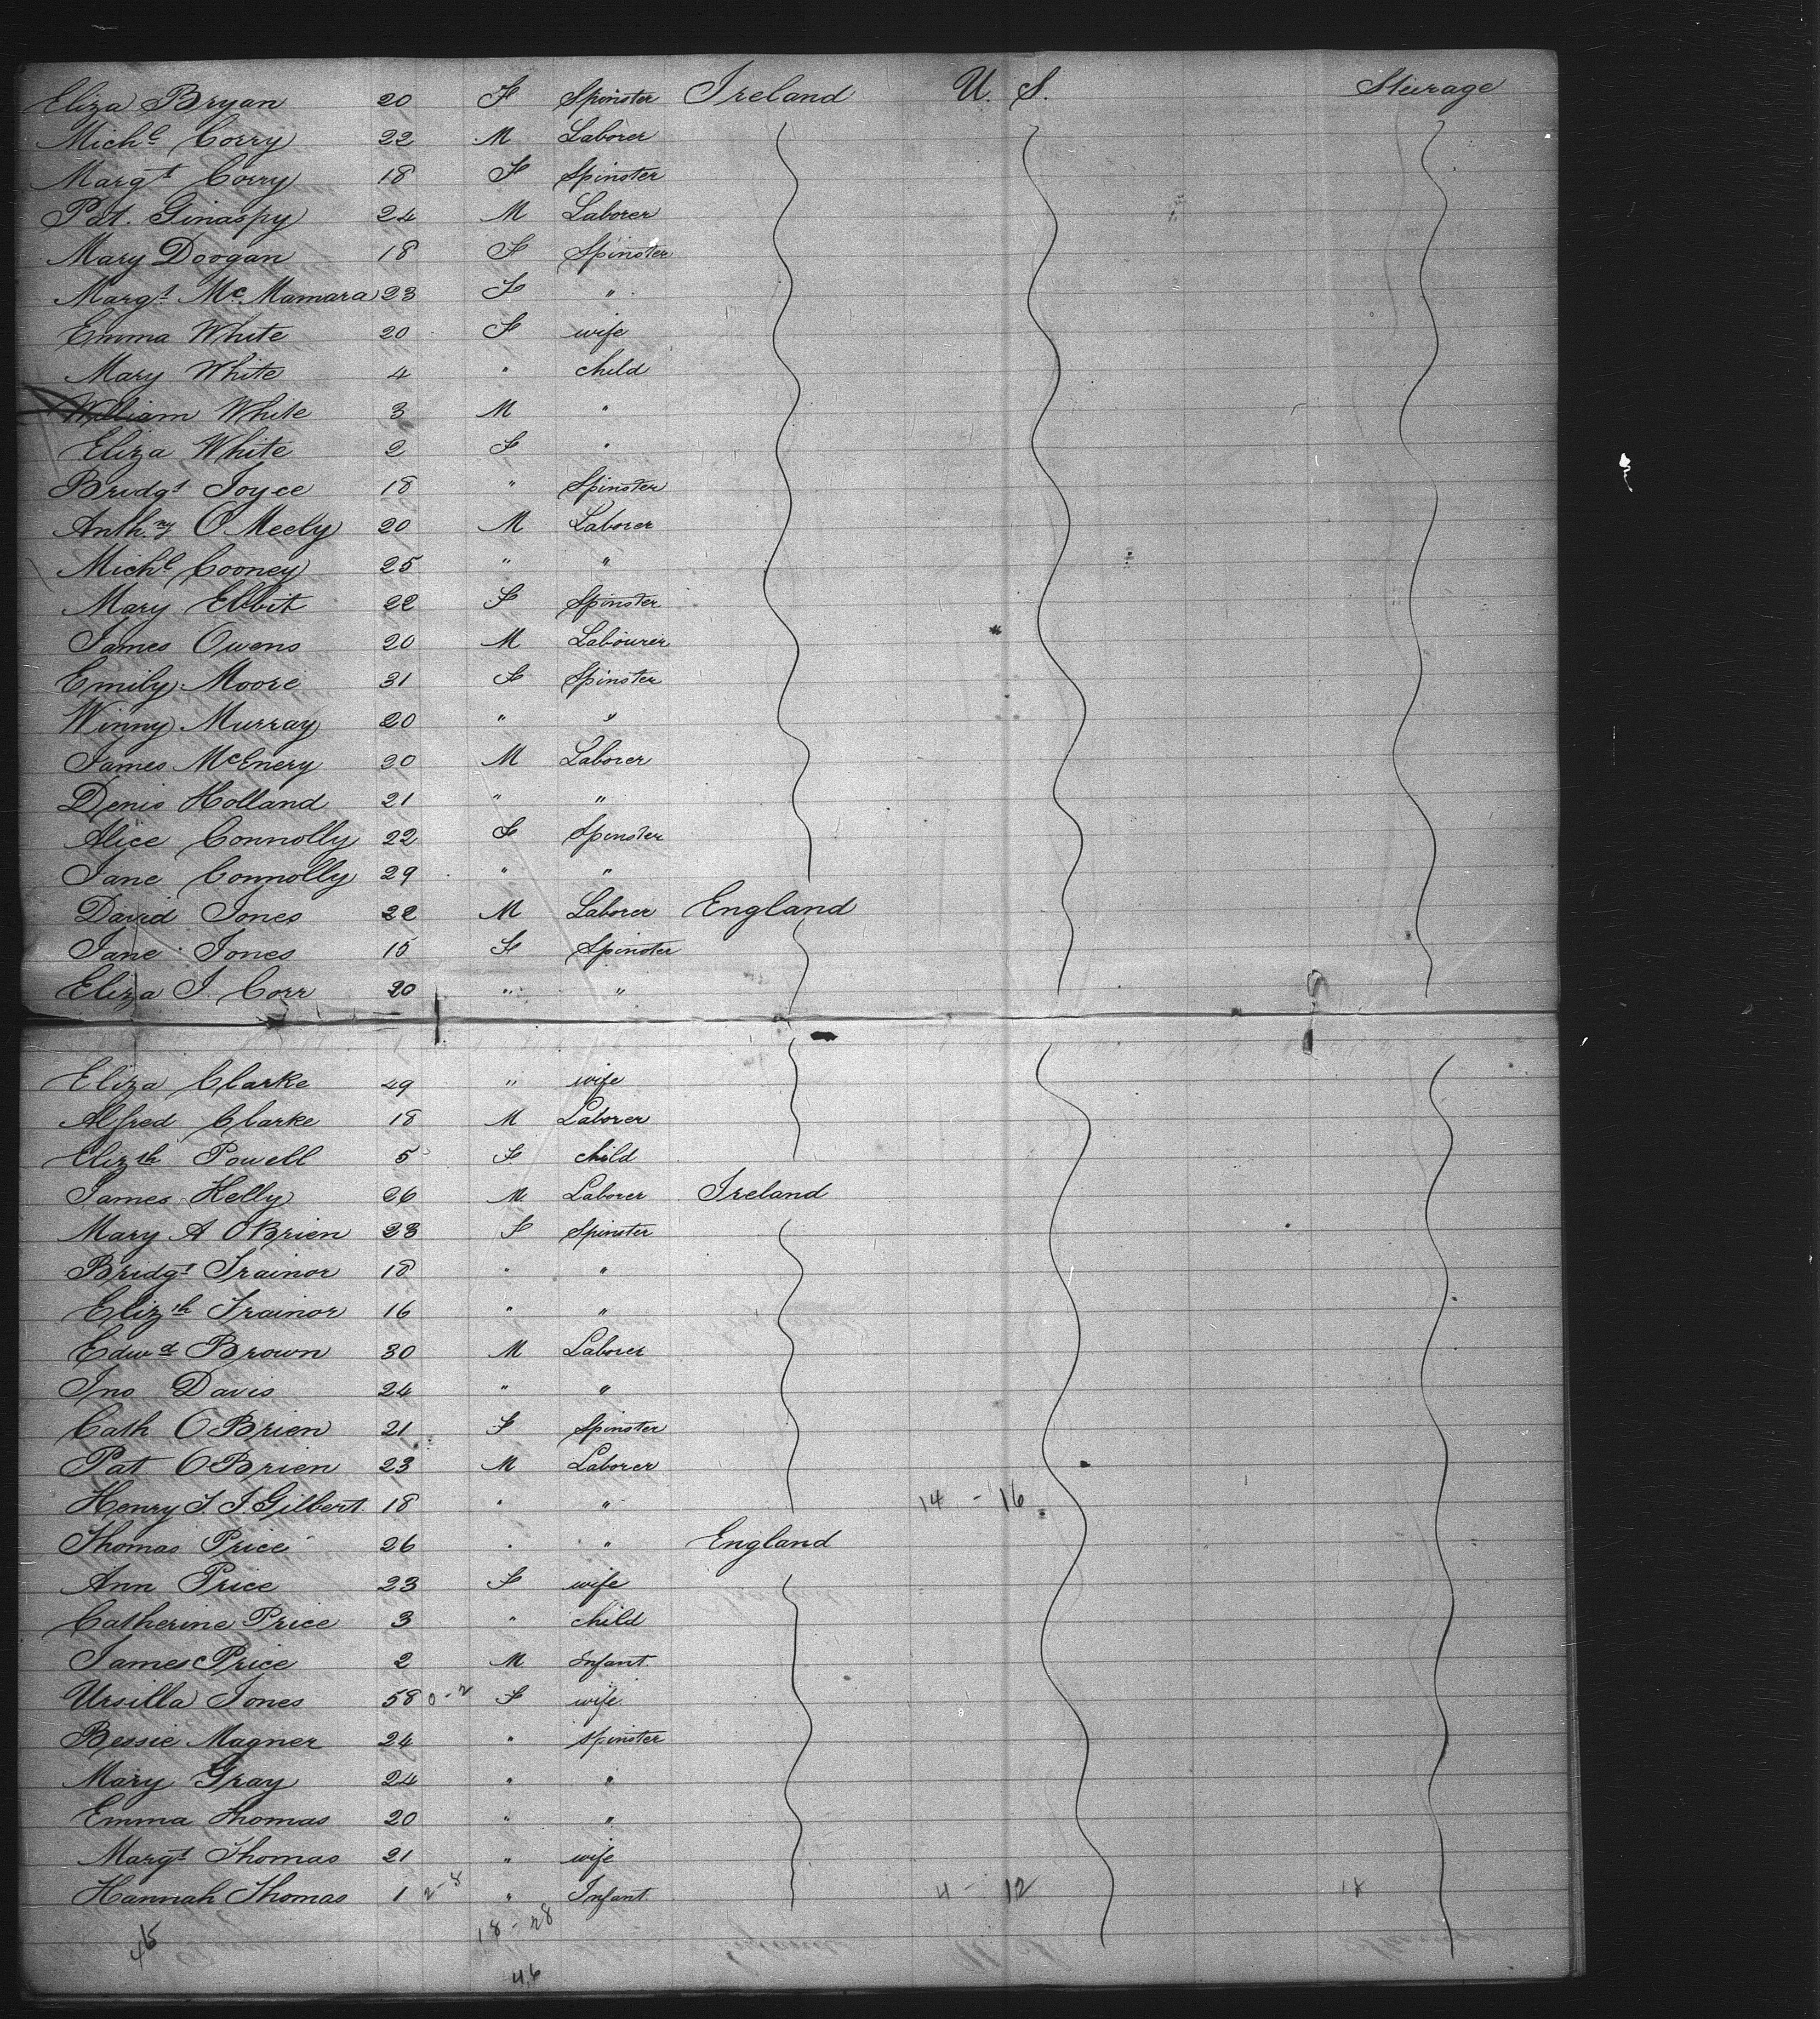 Eliza Bryan 20 F Spinster Ireland U. S. Steerage
Michl Corry 22 M Laborer
Margt Corry 18 F Spinster
Pat. Ginaspy 24 M Laborer
Mary Doogan 18 F Spinster
Margt McMamara 23 F "
Emma White 20 F wife
Mary White 4 " child
William White 3 M "
Eliza White 2 F "
Bridgt Joyce 18 " Spinster
Anthny O Meely 20 M Laborer
Michl Cooney 25 " "
Mary Ellbit 22 F Spinster
James Owens 20 M Labourer
Emily Moore 31 F Spinster
Winny Murray 20 " "
James McEnery 20 M Laborer
Denis Holland 21 " "
Alice Connolly 22 F Spinster
Jane Connolly 29 " "
David Jones 22 M Laborer England
Jane Jones 15 F Spinster
Eliza J. Corr 20 " "
Eliza Clarke 49 " wife
Alfred Clarke 18 M Laborer
Elizth Powell 5 F. child
James Kelly 26 M. Laborer Ireland
Mary A OBrien 23 F Spinster
Bridgt Trainor 18 " "
Elizth Trainor 16 " "
Edwd Brown 30 M Laborer
Jno Davis 24 " "
Cath OBrien 21 F Spinster
Pat OBrien 23 M Laborer
Henry T. J. Gilbert 18 " " 14 - 16
Thomas Price 26 " " England
Ann Price 23 F wife
Catherine Price 3 " child
James Price 2 M. Infant.
Ursilla Jones 58 0-2 F wife
Bessie Magner 24 " spinster
Mary Gray 24 " "
Emma Thomas 20 " "
Margt Thomas 21 " wife
Hannah Thomas 1 2-8 " Infant. 4 - 12 18
18 - 28
45
46